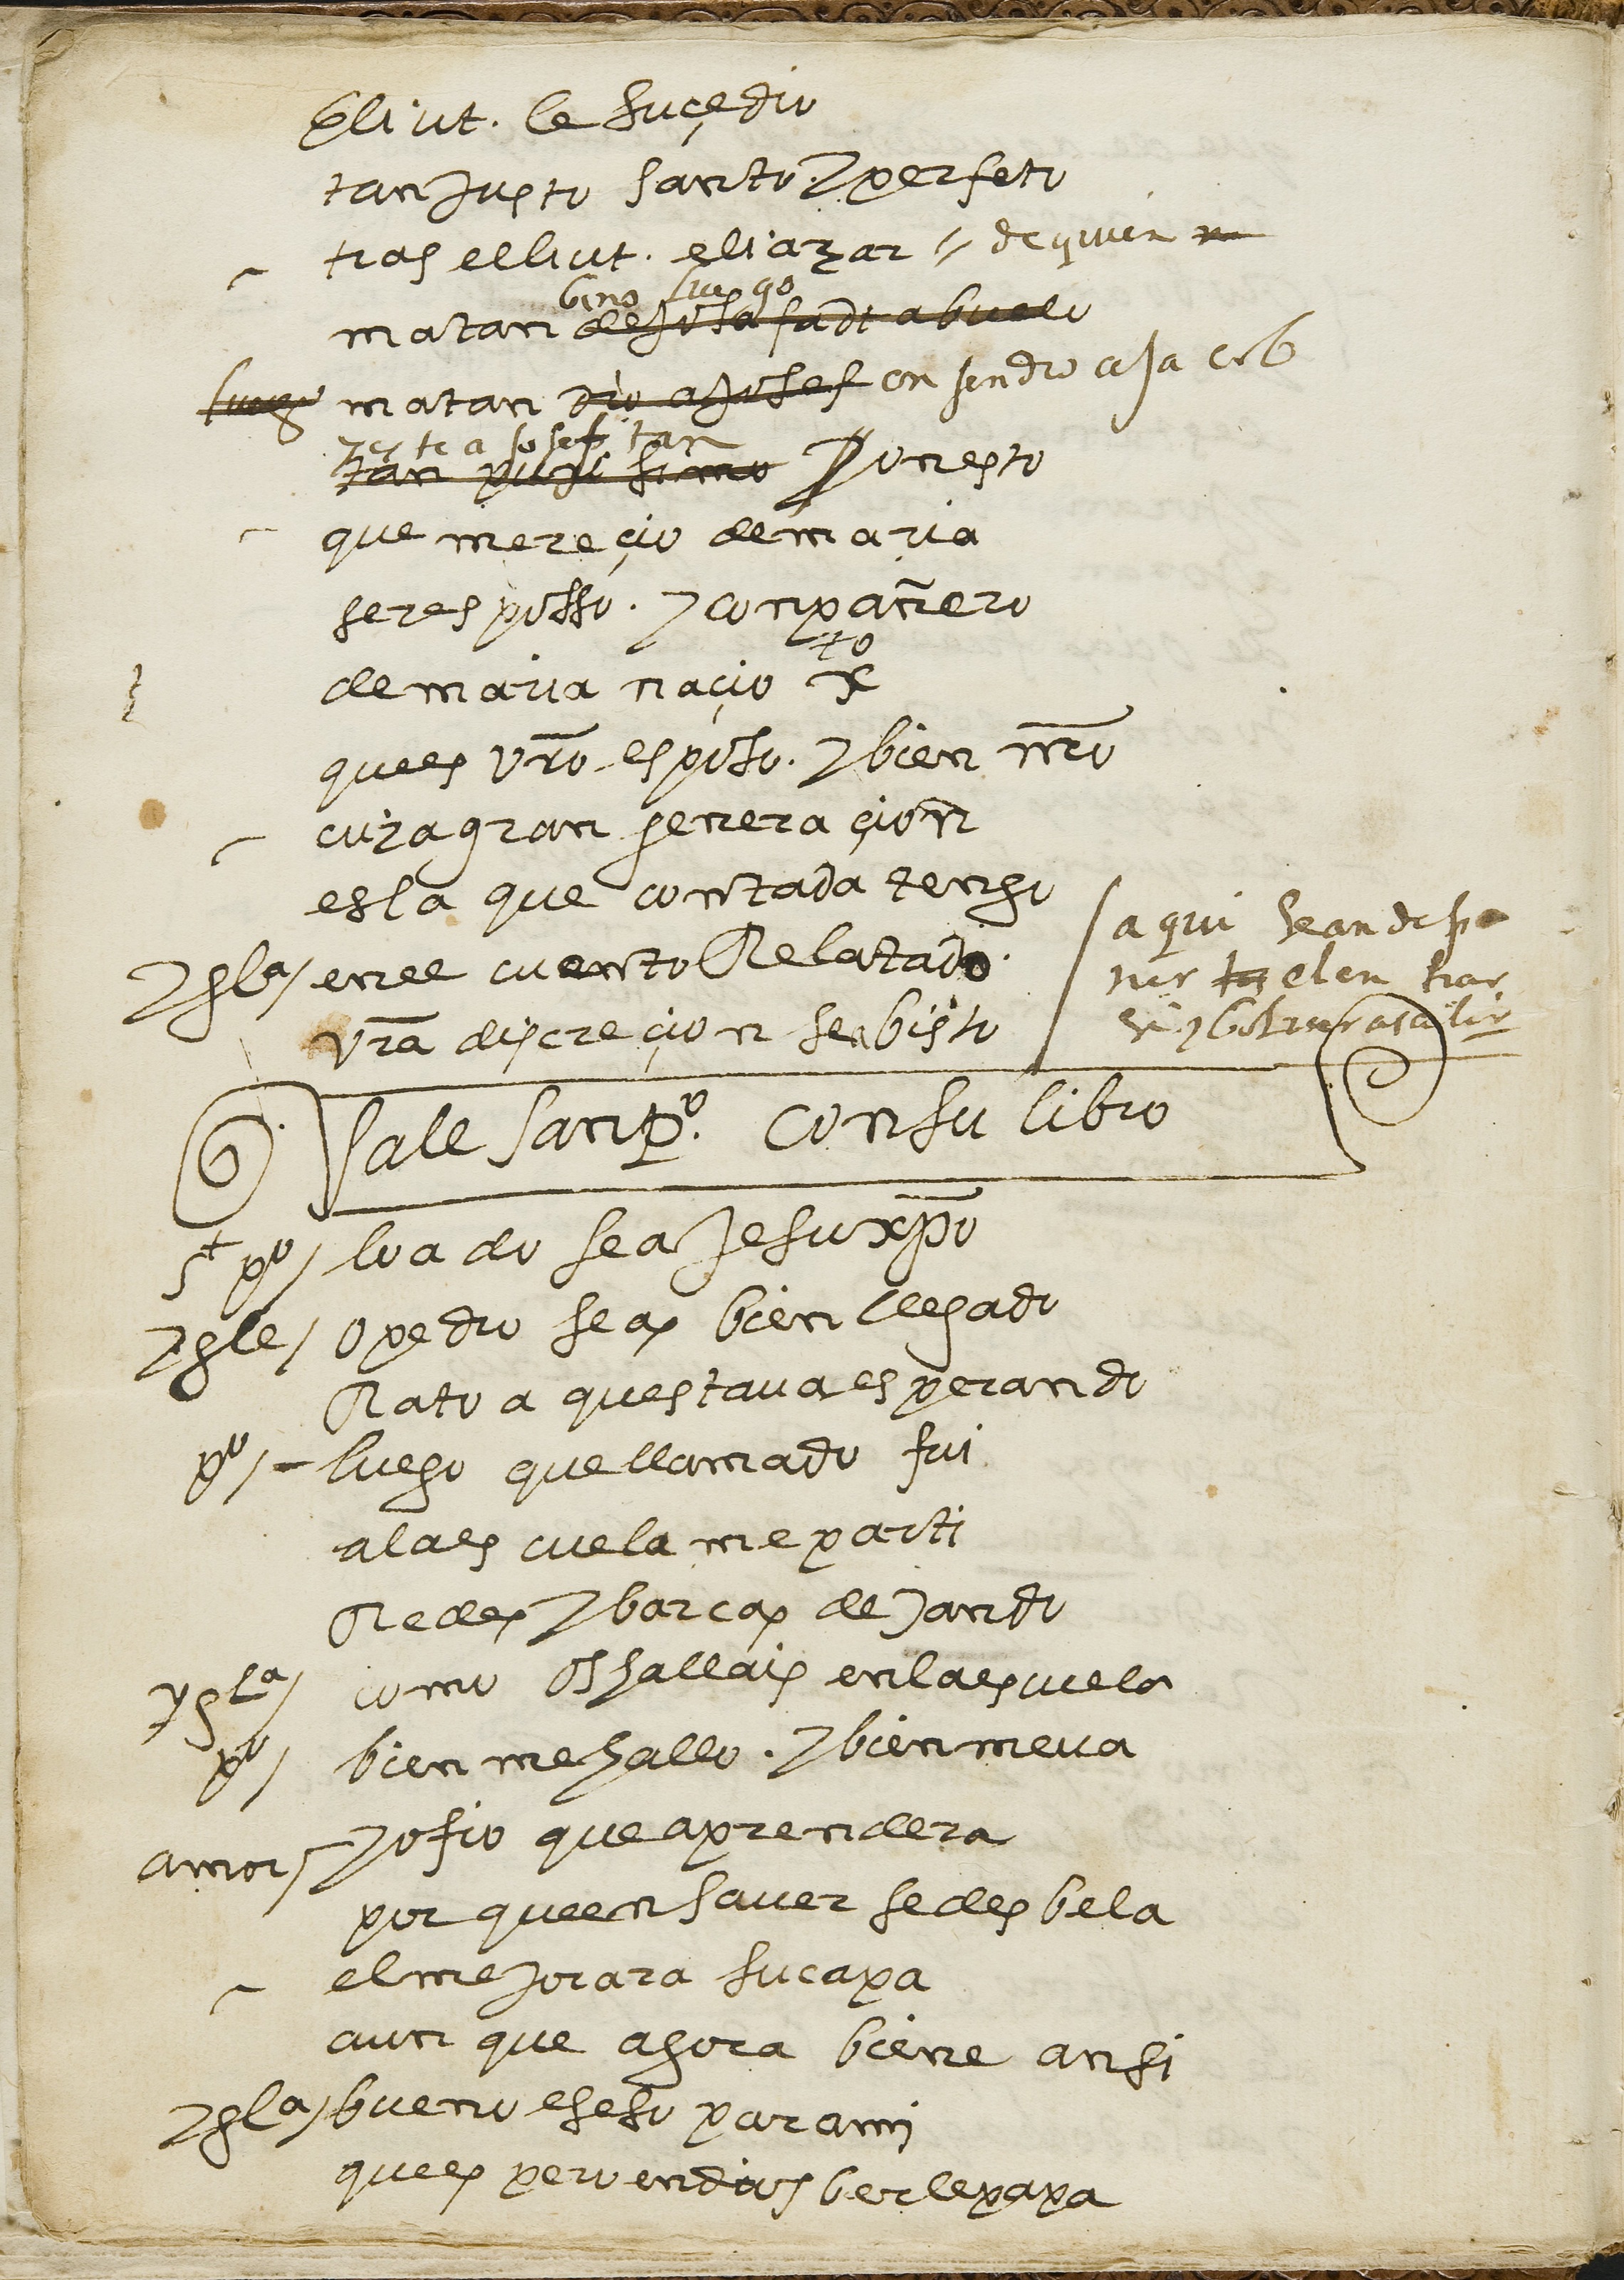 Eliut. le suçedio
tan Justo santo. y perfeto
tras eliut. eliazar // de quien
bino luego
matan de Josafadt abuelo
luego matan dio a Josef en jendro a Ja cob
y este a Josef tan
tan puri simo onesto
que mereçio de maria
ser esposso. y conpañero
to
de maria naçio x
quees vr̃o esposo. y bien nr̃o
cuya gran generaçion
es la que contada tengo
ygla / en el cuento Relatado.
vr̃a discreçion se a bisto
/ a qui se an de po
ner el en trar
y bolver a salir
Sale san p.º con su libro
st pº / loado sea Jesu xp̃o
ygle / o pedro seas bien llegado
Rato a questava esperando
pº / – luego que llamado fui
a la escuela me parti
Redes y barcas dejando
ygla / como os hallais en la escuela
pº / bien me hallo. y bien me va
amor / yo fio que aprendera
por que en saver se desbela
el mejorara su capa
aun que agora biene ansi
ygla / bueno es eso para mi
quees pero en dios berle papa